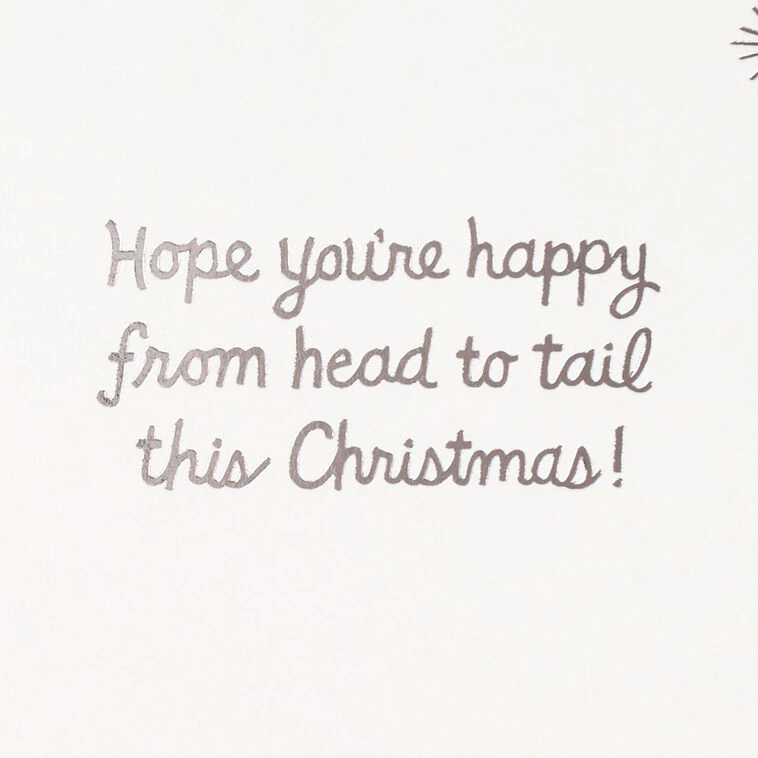 Hope you're happy
from head to tail
this Christmas!